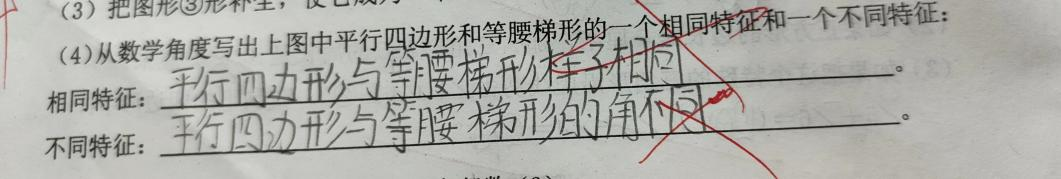 (3) 把图形③形补全，
(4)从数学角度写出上图中平行四边形和等腰梯形的一个相同特征和一个不同特征：
相同特征：平行四边形与等腰梯形样子相同。
不同特征：平行四边形与等腰梯形的角不同。